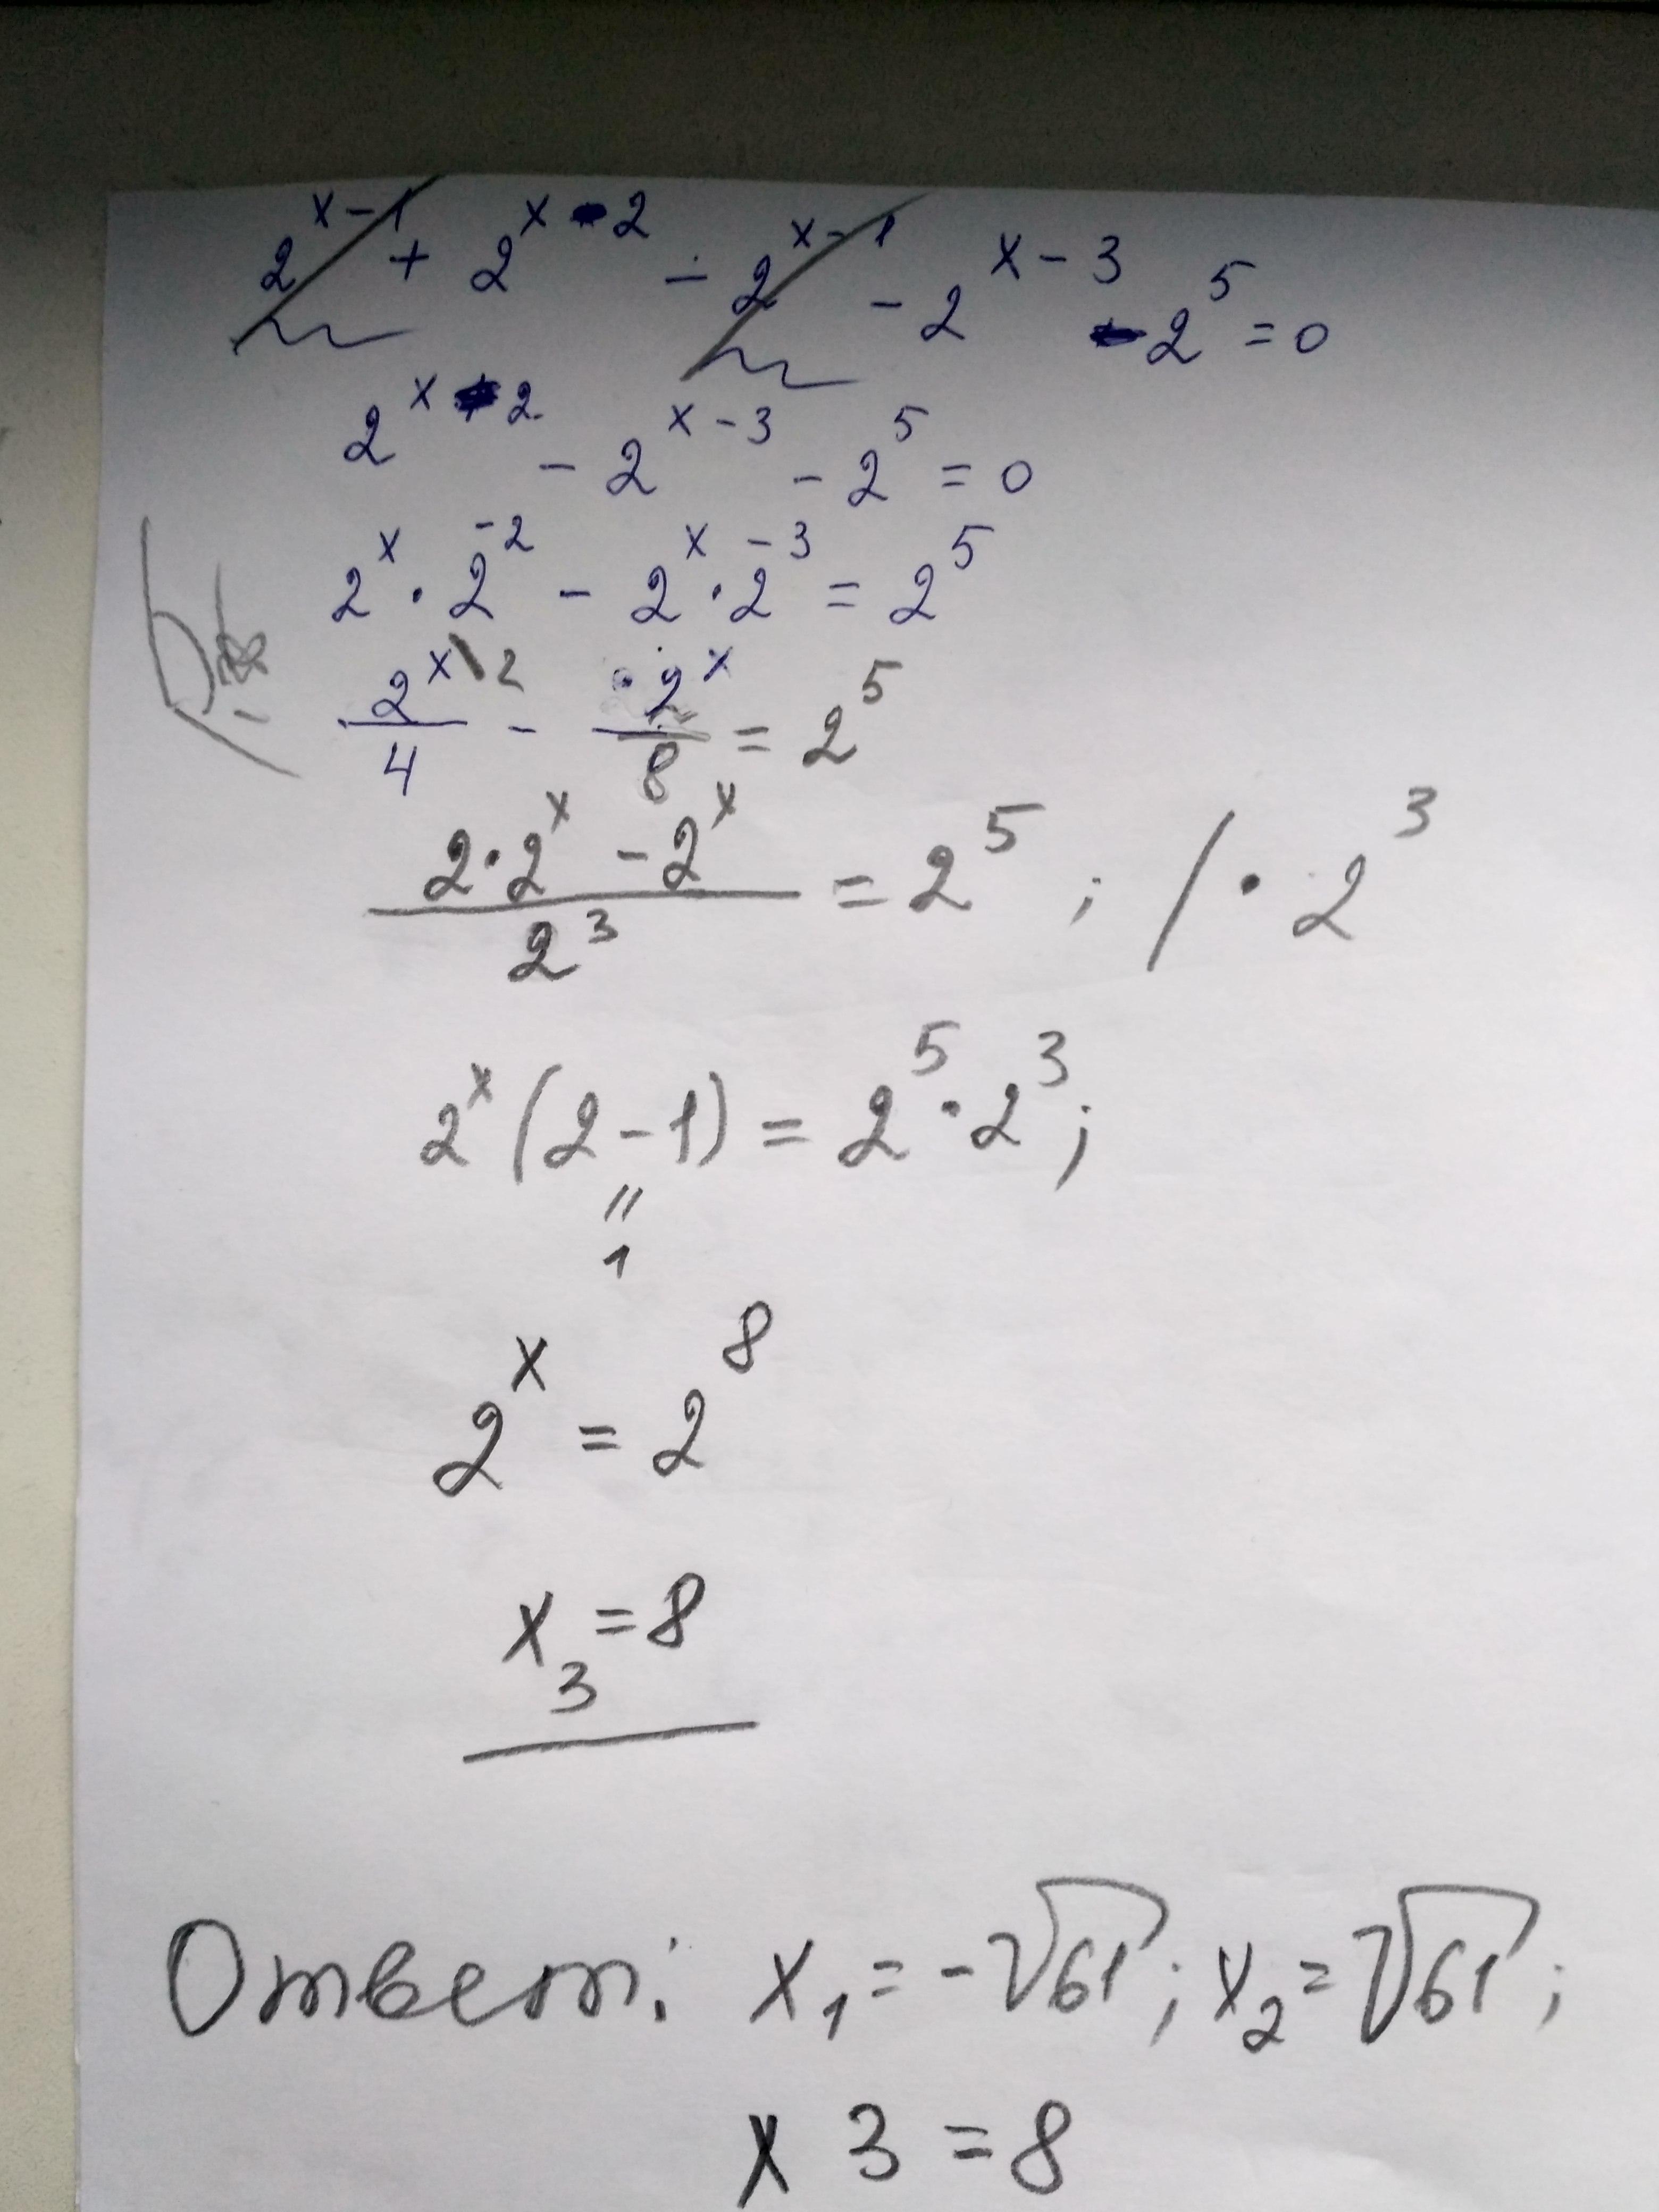 2^(x-1) + 2^(x-2) - 2^(x-1) - 2^(x-3) - 2^5 = 0
2^(x-2) - 2^(x-3) - 2^5 = 0
2^x · 2^(-2) - 2^x · 2^(-3) = 2^5
2^x\2 / 4 - 2^x / 8 = 2^5
(2·2^x - 2^x) / 2^3 = 2^5 ; / · 2^3
2^x (2 - 1) = 2^5 · 2^3 ;
"
1
2^x = 2^8
x_3 = 8
Ответ: x_1 = -√61 ; x_2 = √61 ;
x 3 = 8